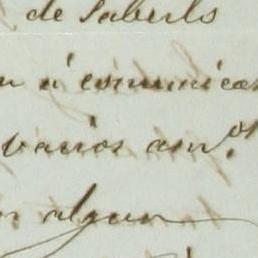 de saberls
á comunicar
varios am.os
algun